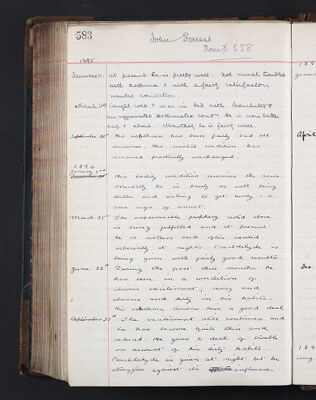 583
John Forrest
From 558
1895
January 10. at present he is pretty well. Not much troubled
with asthma & with a fairly satisfactory
mental condition.
March 30th Caught cold & was in bed with bronchitis &
an aggravated asthmatic condn. He is now better
and is about. Mentally he is fairly well.
September 30th His asthma has been fairly bad all
summer. His mental condition has
remained practically unchanged.
1896
January 5th
His bodily condition remains the same.
Mentally he is barely so well being
duller and asking to get away - a
sure sign of unrest.
March 31st The unfavourable prophecy noted above
is being fulfilled and at present
he is restless and often excited
especially at nights. Paraldehyde is
being given with fairly good results.
June 30th During the past three months he
has been in a condition of
chronic excitement; noisy and
abusive and dirty in his habits.
His asthma troubles him a good deal
September 30th The excitement still continues and
he has become quite thin and
reduced. He gives a deal of trouble
on account of his dirty habits.
Paraldehyde is given at night but he
struggles against its influence.
189
Januar
April
Dec
189